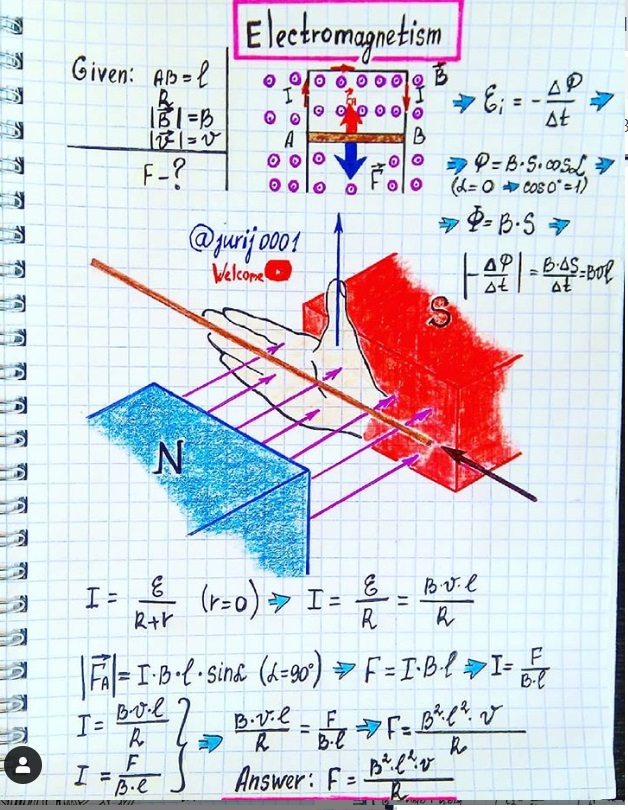 Electromagnetism
Given: AB=l
R
|B⃗|=B
|v⃗|=v
F-?
B⃗
I I
A B
F⃗
Ɛi = - ΔФ/Δt
Ф=B·S·cosα
(α=0 ⇒ cos0°=1)
Ф=B·S
|-ΔФ/Δt| = B·ΔS/Δt = Bvl
@jurij0001
Welcome
S
N
I = Ɛ/(R+r) (r=0) ⇒ I = Ɛ/R = B·v·l/R
|F⃗A| = I·B·l·sinα (α=90°) ⇒ F=I·B·l ⇒ I = F/B·l
I = B·v·l/R
I = F/B·l
} ⇒ B·v·l/R = F/B·l ⇒ F = B²·l²·v/R
Answer: F = B²·l²·v/R